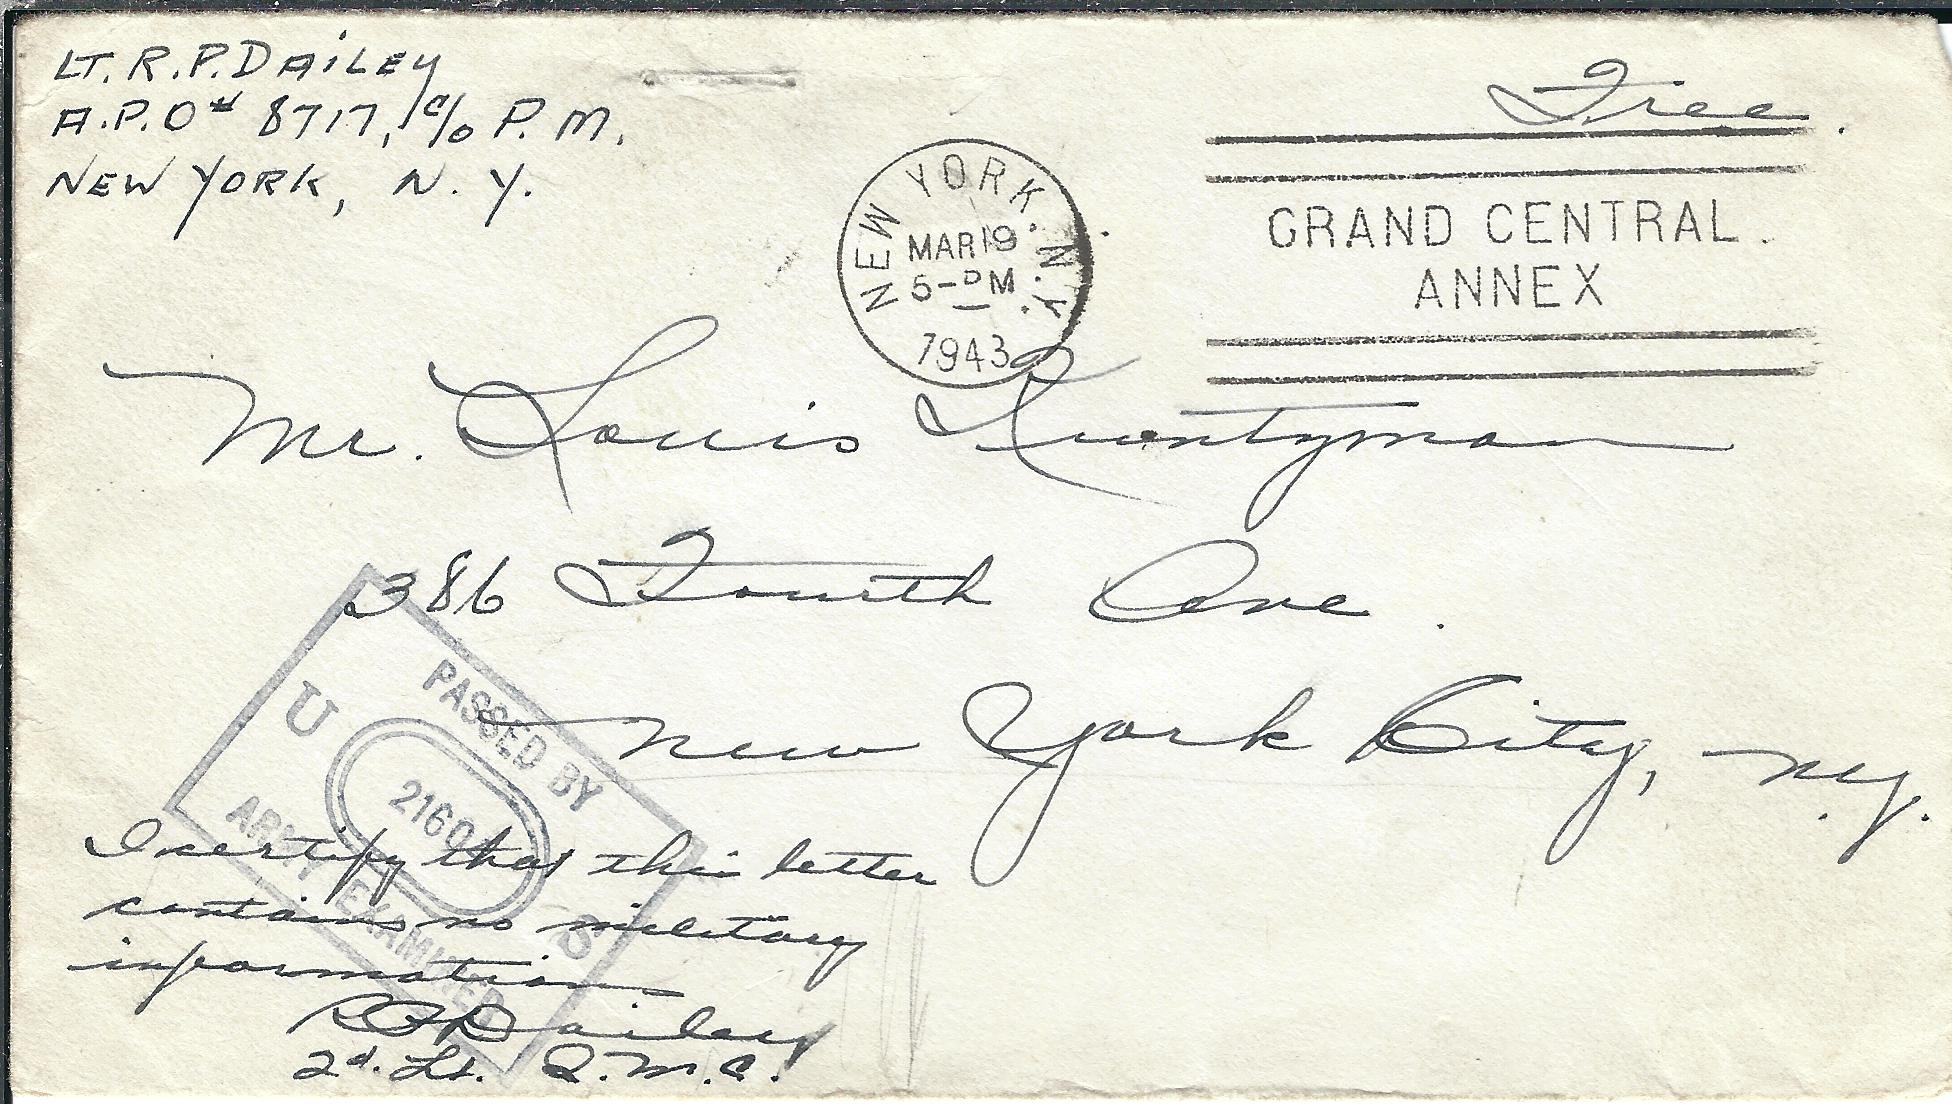 LT. R.P. DAILEY
A.P.O # 8717, c/o P.M.
NEW YORK, N.Y.
Free.
NEW YORK, N.Y.
MAR 19
5-PM
1943
GRAND CENTRAL
ANNEX
Mr. Louis
386 Fourth Ave.
New York City, N.Y.
PASSED BY
U S
ARMY EXAMINER
I certify that this letter
contains no military
information
R P Dailey
2d. Lt. Q.M.C.